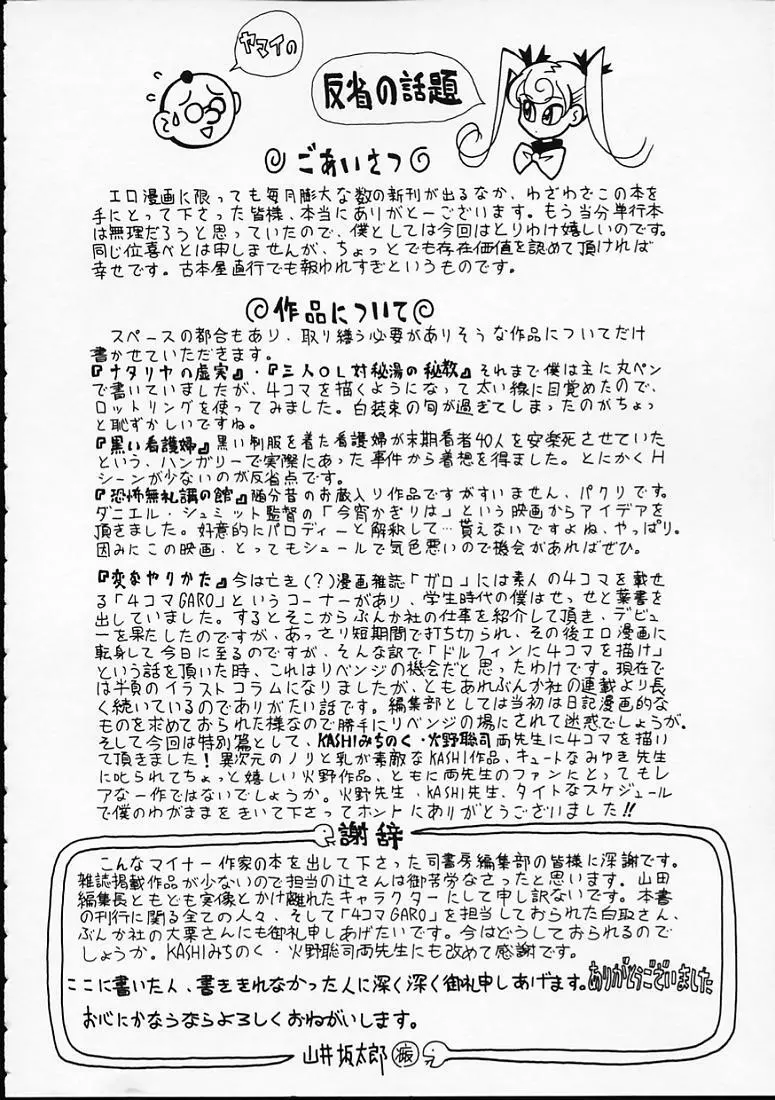 ヤマイの
反省の話題
ごあいさつ
エロ漫画に限っても毎月膨大な数の新刊が出るなか、わざわざこの本を
手にとって下さった皆様、本当にありがとーございます。もう当分単行本
は無理だろうと思っていたので、僕としては今回はとりわけ嬉しいのです。
同じ位喜べとは申しませんが、ちょっとでも存在価値を認めて頂ければ
幸せです。古本屋直行でも報われすぎというものです。
作品について
スペースの都合もあり、取り繕う必要がありそうな作品についてだけ
書かせていただきます。
『ナタリヤの虚実』・『三人OL対秘湯の秘教』それまで僕は主に丸ペン
で書いていましたが、4コマを描くようになって太い線に目覚めたので、
ロットリングを使ってみました。白装束の旬が過ぎてしまったのがちょっ
と恥ずかしいですね。
『黒い看護婦』黒い制服を着た看護婦が末期看者40人を安楽死させていた
という、ハンガリーで実際にあった事件から着想を得ました。とにかくH
シーンが少ないのが反省点です。
『恐怖無礼講の館』随分昔のお蔵入り作品ですがすいません、パクリです。
ダニエル・シュミット監督の「今宵かぎりは」という映画からアイデアを
頂きました。好意的にパロディーと解釈して…貰えないですよね、やっぱり。
因みにこの映画、とってもシュールで気色悪いので機会があればぜひ。
『変なやりかた』今は亡き(?)漫画雑誌「ガロ」には素人の4コマを載せ
る「4コマGARO」というコーナーがあり、学生時代の僕はせっせと葉書を
出していました。するとそこからぶんか社の仕事を紹介して頂き、デビュ
ーを果たしたのですが、あっさり短期間で打ち切られ、その後エロ漫画に
転身して今日に至るのですが、そんな訳で「ドルフィンに4コマを描け」
という話を頂いた時、これはリベンジの機会だと思ったわけです。現在で
は半頁のイラストコラムになりましたが、ともあれぶんか社の連載より長
く続いているのでありがたい話です。編集部としては当初は日記漫画的な
ものを求めておられた様なので勝手にリベンジの場にされて迷惑でしょうが。
そして今回は特別篇として、KASHIみちのく・火野聡司両先生に4コマを描い
て頂きました!異次元のノリと乳が素敵なKASHI作品、キュートなみゆき先生
に叱られてちょっと嬉しい火野作品、ともに両先生のファンにとってもレ
アな一作ではないでしょうか。火野先生、KASHI先生、タイトなスケジュール
で僕のわがままをきいて下さってホントにありがとうございました!!
謝辞
こんなマイナー作家の本を出して下さった司書房編集部の皆様に深謝です。
雑誌掲載作品が少ないので担当の辻さんは御苦労なさったと思います。山田
編集長ともども実像とかけ離れたキャラクターにして申し訳ないです。本書
の刊行に関る全ての人々、そして「4コマGARO」を担当しておられた白取さん、
ぶんか社の大栗さんにも御礼申しあげたいです。今はどうしておられるので
しょうか。KASHIみちのく・火野聡司両先生にも改めて感謝です。
ここに書いた人、書ききれなかった人に深く深く御礼申しあげます。ありがとうございました
お心にかなうならよろしくおねがいします。
山井坂太郎